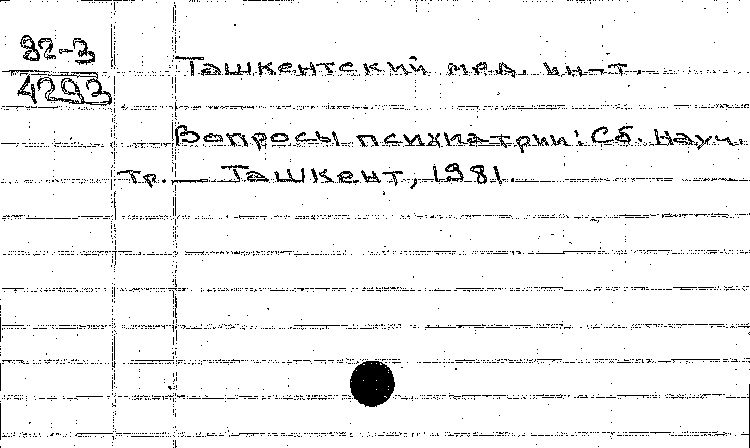 82-3
4293
Ташкентский мед. ин-т.
Вопросы психиатрии: Сб. науч.
тр. — Ташкент, 1981.